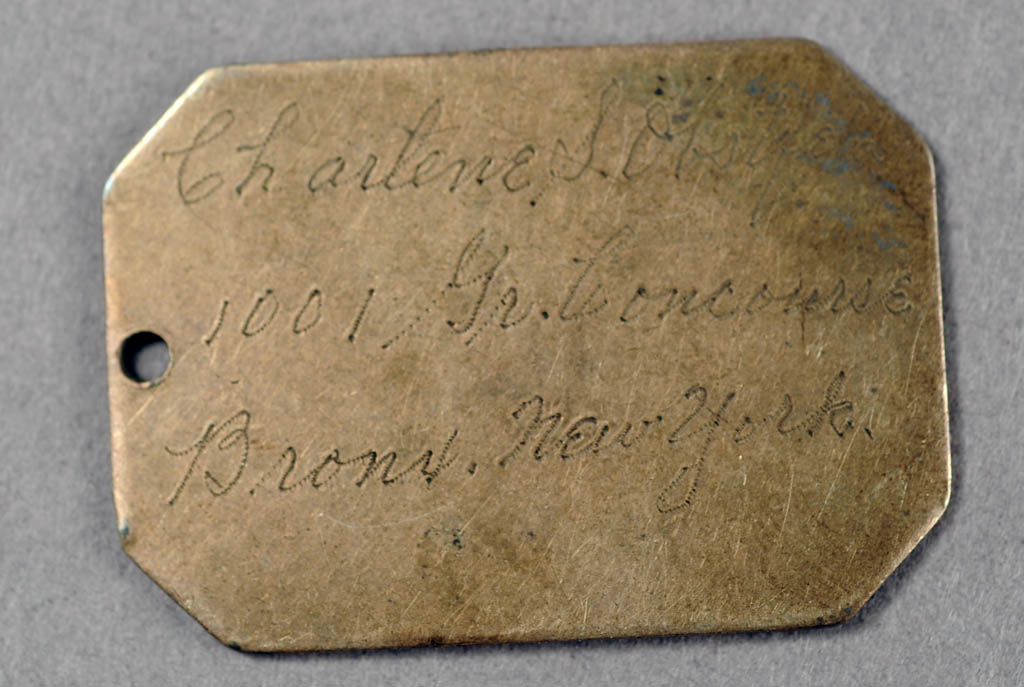 Charlene S.
1001 Gr. Concourse
Bronx. New York.